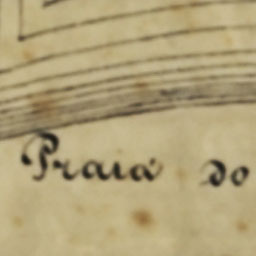 Praia do